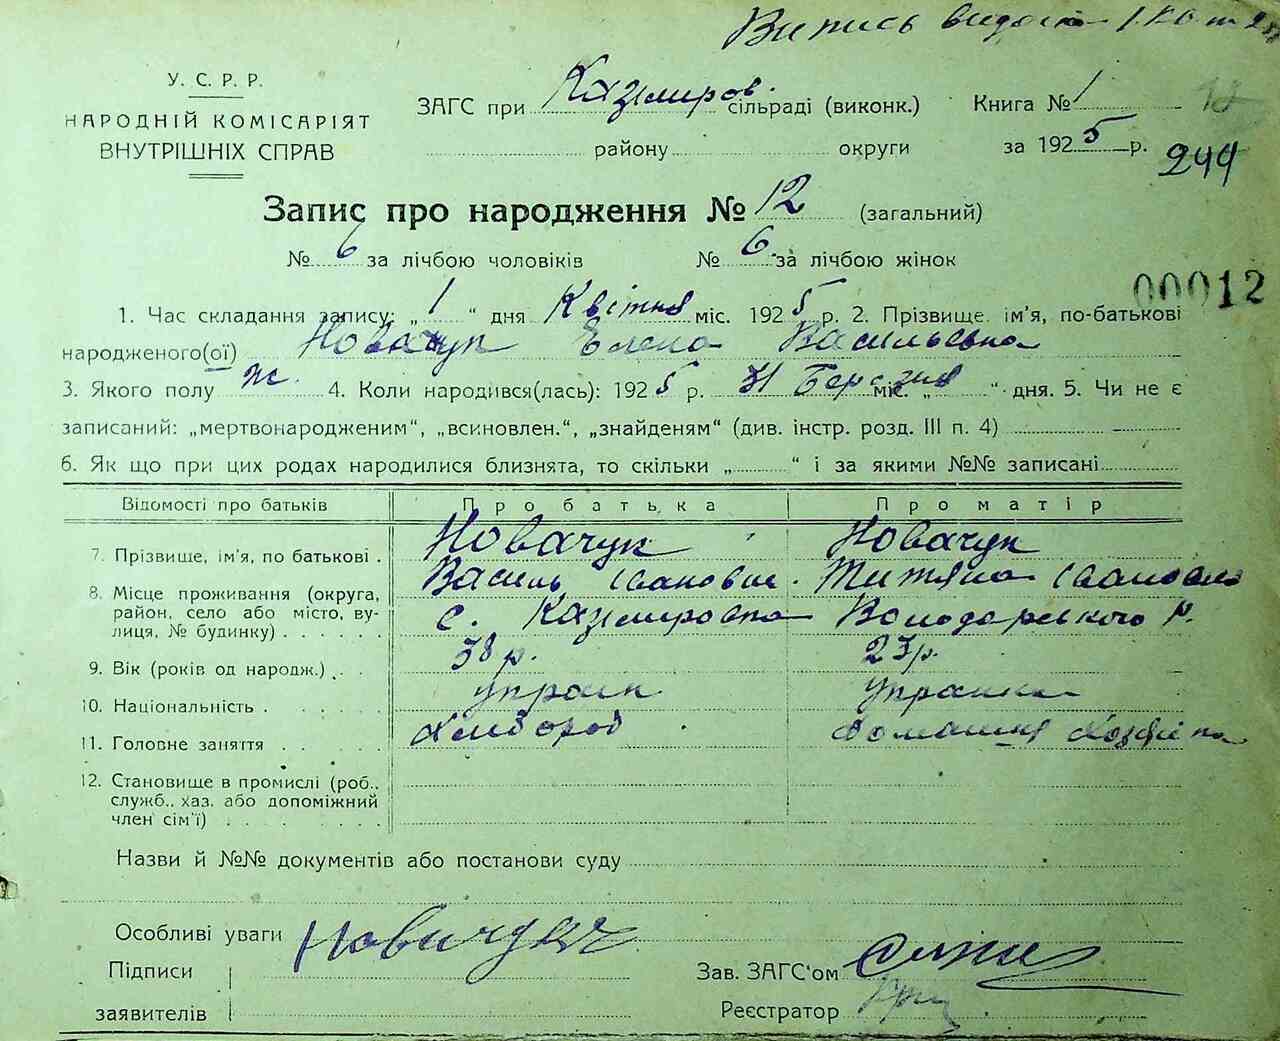 Випись видана
У. С. Р. Р.
НАРОДНІЙ КОМІСАРІЯТ
ВНУТРІШНІХ СПРАВ
ЗАГС при Казимиров. сільраді (виконк.) Книга № 1
району округи за 1925 р.
12
244
Запис про народження № 12 (загальний)
№ 6 за лічбою чоловіків № 6 за лічбою жінок
00012
1. Час складання запису: „1“ дня Квітня міс. 1925 р. 2. Прізвище, ім'я, по-батькові
народженого(ої) Новачук Елена Васильевна
3. Якого полу ж. 4. Коли народився(лась): 1925 р. 31 Березня міс. „ “ дня. 5. Чи не є
записаний: „мертвонародженим“, „всиновлен.“, „знайденям“ (див. інстр. розд. III п. 4)
6. Як що при цих родах народилися близнята, то скільки „ “ і за якими №№ записані
Відомості про батьків Про батька Про матір
7. Прізвище, ім'я, по батькові . Новачук Новачук
Василь Іванович. Титяна Івановна
8. Місце проживання (округа,
район, село або місто, ву-
лиця, № будинку) с. Казмировка Володарського р.
9. Вік (років од народж.) 38 р. 23 р.
10. Національність украін украінка
11. Головне заняття Хлибороб домашня хозяйка
12. Становище в промислі (роб.,
служб., хаз. або допоміжний
член сім'ї)
Назви й №№ документів або постанови суду
Особливі уваги
Підписи
заявителів
Зав. ЗАГС'ом
Реєстратор